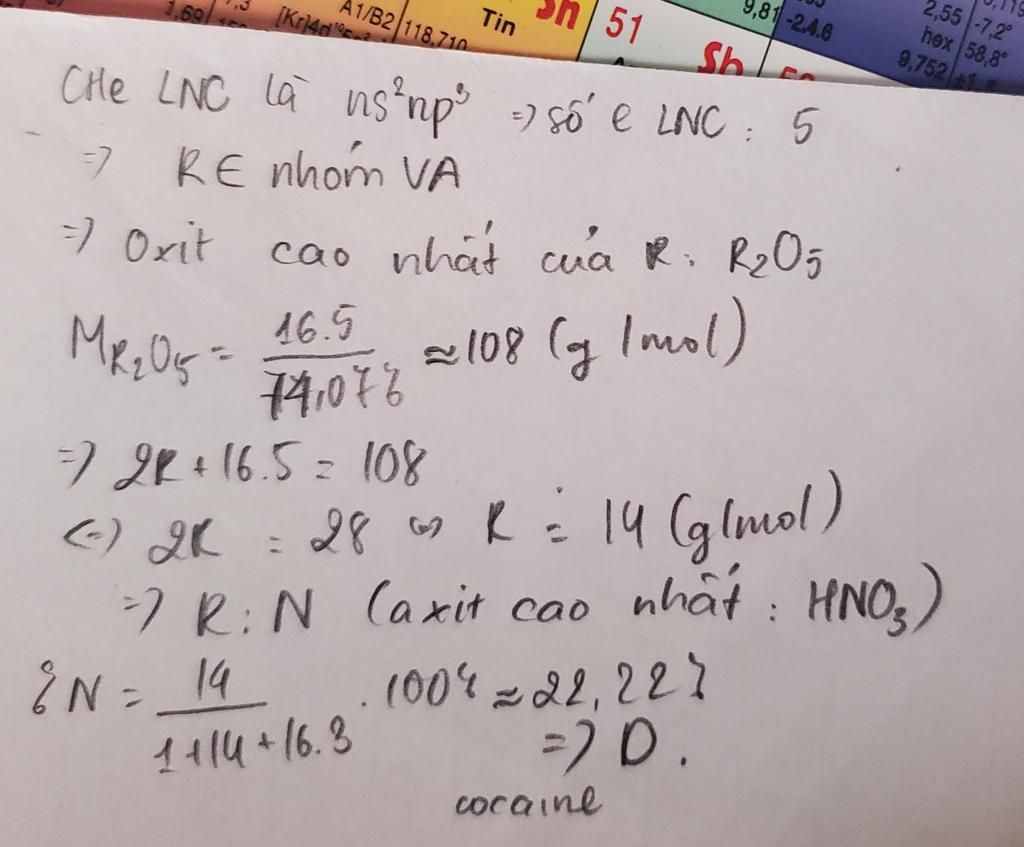 1,69
[Kr]4d
A1/B2
118,710
Tin
Sn
51
Sb
9,81
-2.4.6
2,55
-7,2°
hex
58,8°
9,752
CHe LNC là ns²np³ => số e LNC : 5
=> R ∈ nhóm VA
=> Oxit cao nhất của R : R₂O₅
M R₂O₅ = 16.5 / 74,07% ≈ 108 (g/mol)
=> 2R + 16.5 = 108
<=> 2R = 28 <=> R = 14 (g/mol)
=> R : N (axit cao nhất : HNO₃)
%N = 14 / 1+14+16.3 . 100% ≈ 22,22%
=> D .
cocaine